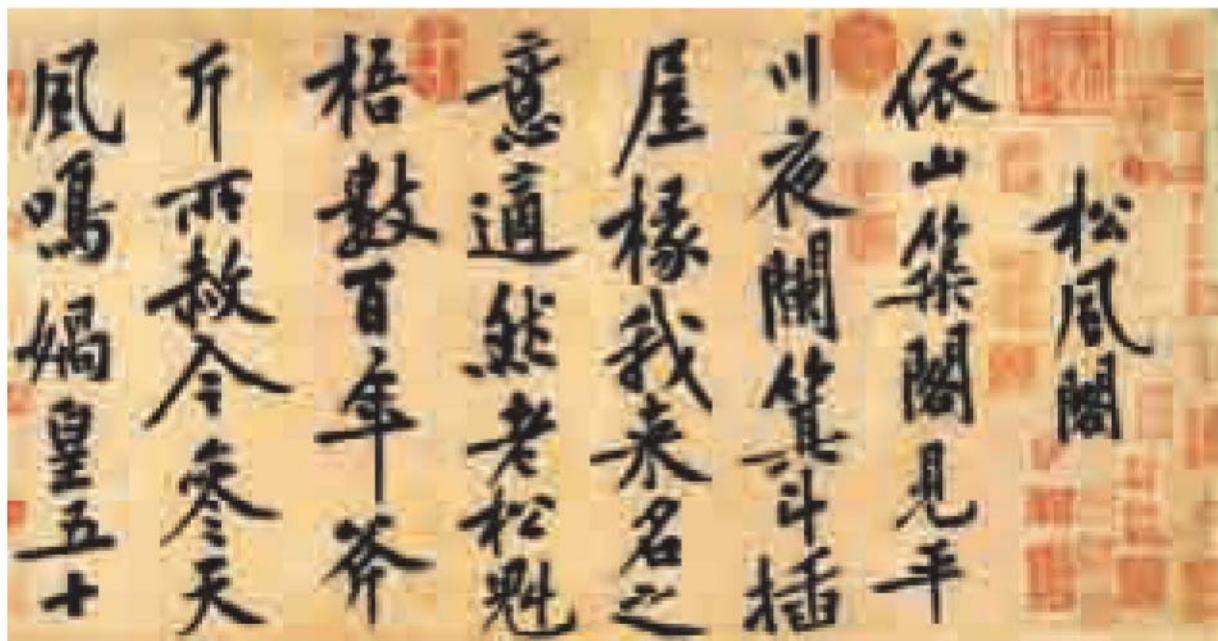 松風閣
依山築閣見平
川夜闌箕斗插
屋椽我来名之
意適然老松魁
梧數百年斧
斤所赦今參天
風鳴媧皇五十